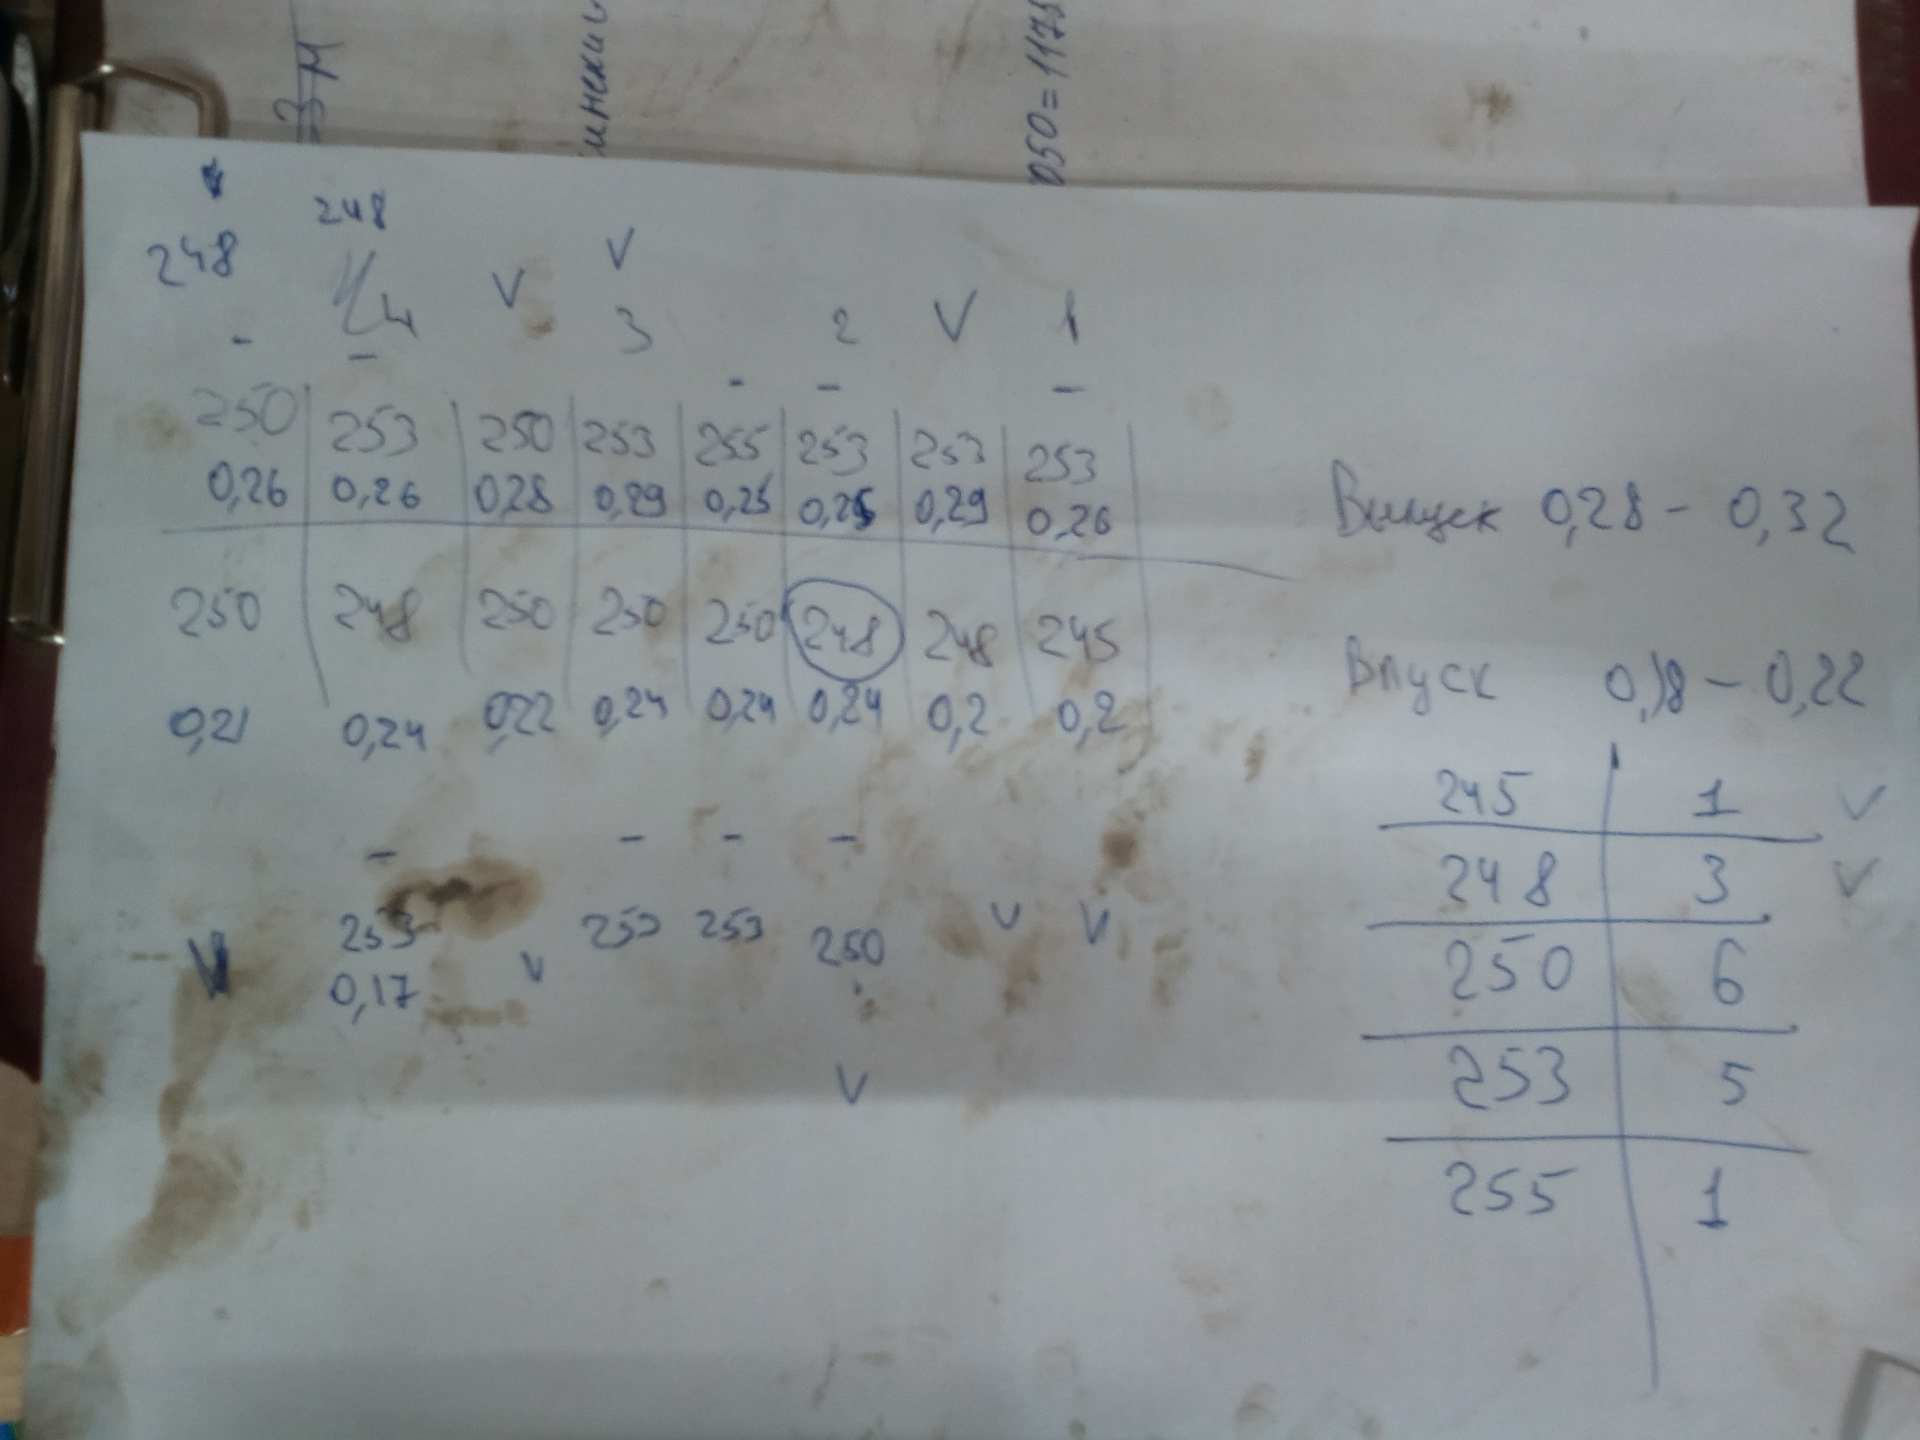 3М
050=1175
248
248
4 V 3 V 2 V 1
- - - - -
250 253 250 253 255 253 253 253
0,26 0,26 0,28 0,29 0,25 0,25 0,29 0,26
Выпуск 0,28 - 0,32
250 248 250 250 250 248 248 245
0,21 0,24 0,22 0,24 0,24 0,24 0,2 0,2
Впуск 0,18 - 0,22
- - - -
V 253 V 253 253 250 V V
0,17
V
245 1 V
248 3 V
250 6
253 5
255 1